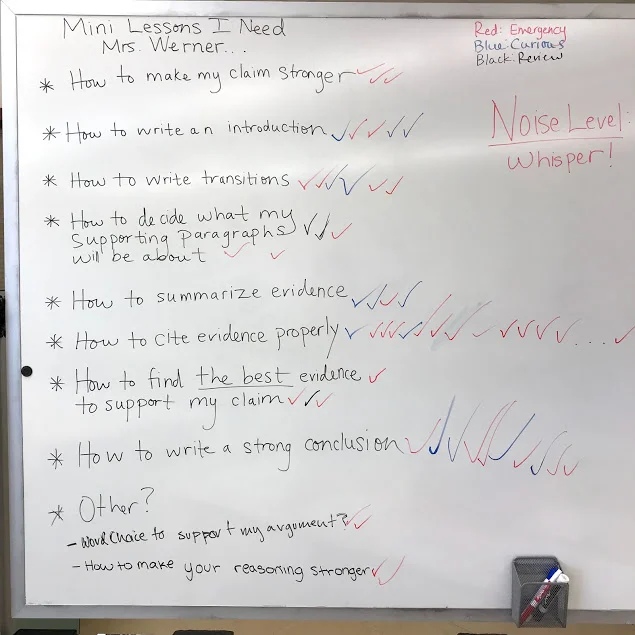 Mini Lessons I Need
Mrs. Werner...
Red: Emergency
Blue: Curious
Black: Review
Noise Level:
Whisper!
* How to make my claim stronger ✓✓✓
* How to write an introduction ✓✓✓✓✓
* How to write transitions ✓✓✓✓✓✓
* How to decide what my ✓✓✓
supporting paragraphs
will be about ✓ ✓
* How to summarize evidence ✓✓✓✓
* How to cite evidence properly ✓✓✓✓✓✓✓✓✓✓✓✓....✓
* How to find the best evidence ✓
to support my claim ✓✓✓
* How to write a strong conclusion ✓✓✓✓✓✓✓✓✓✓
* Other?
- word choice to support my argument? ✓✓
- How to make your reasoning stronger ✓✓